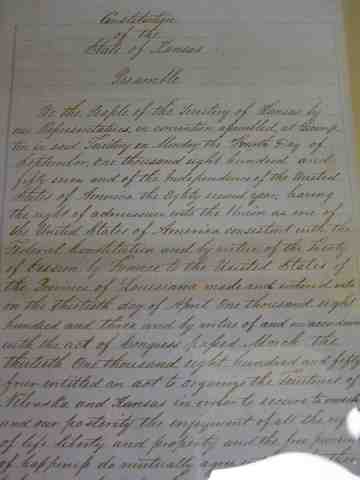 Constitution
of the
State of Kansas
Preamble
We the People of the Territory of Kansas by
our Representatives in convention assembled, at Lecomp
ton in said Territory on Monday the Fourth Day of
September one thousand eight hundred and
fifty seven and of the Independence of the United
States of America the Eighty second year, having
the right of admission into the Union as one of
the United States of America consistent with the
Federal Constitution and by virtue of the Treaty
of Cession by France to the United States of
the Province of Louisiana made and entered into
on the thirtieth day of April One thousand eight
hundred and three and by virtue of and in accordance
with the act of Congress passed March the
thirtieth One thousand eight hundred and fifty
four entitled an act to organize the Territories of
Nebraska and Kansas in order to secure to
and our posterity the enjoyment of all the
of life liberty and property and the free pursuit
of happiness do mutually agree